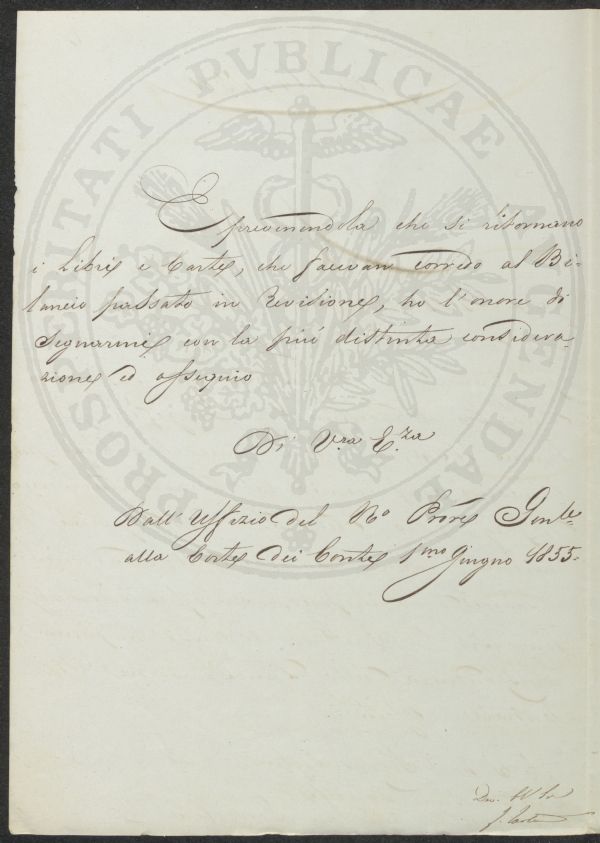 PROSPERITATI PVBLICAE AVGENDAE
E prevenendola che si ritornano
i Libri e Carte, che facevan corredo al Bi-
lancio passato in Revisione, ho l'onore di
segnarmi con la più distinta considera-
zione ed ossequio
Di V.ra E.za
Dall' Uffizio del R.o Pro.re Gen.le
alla Corte dei Conti 1.mo Giugno 1855.